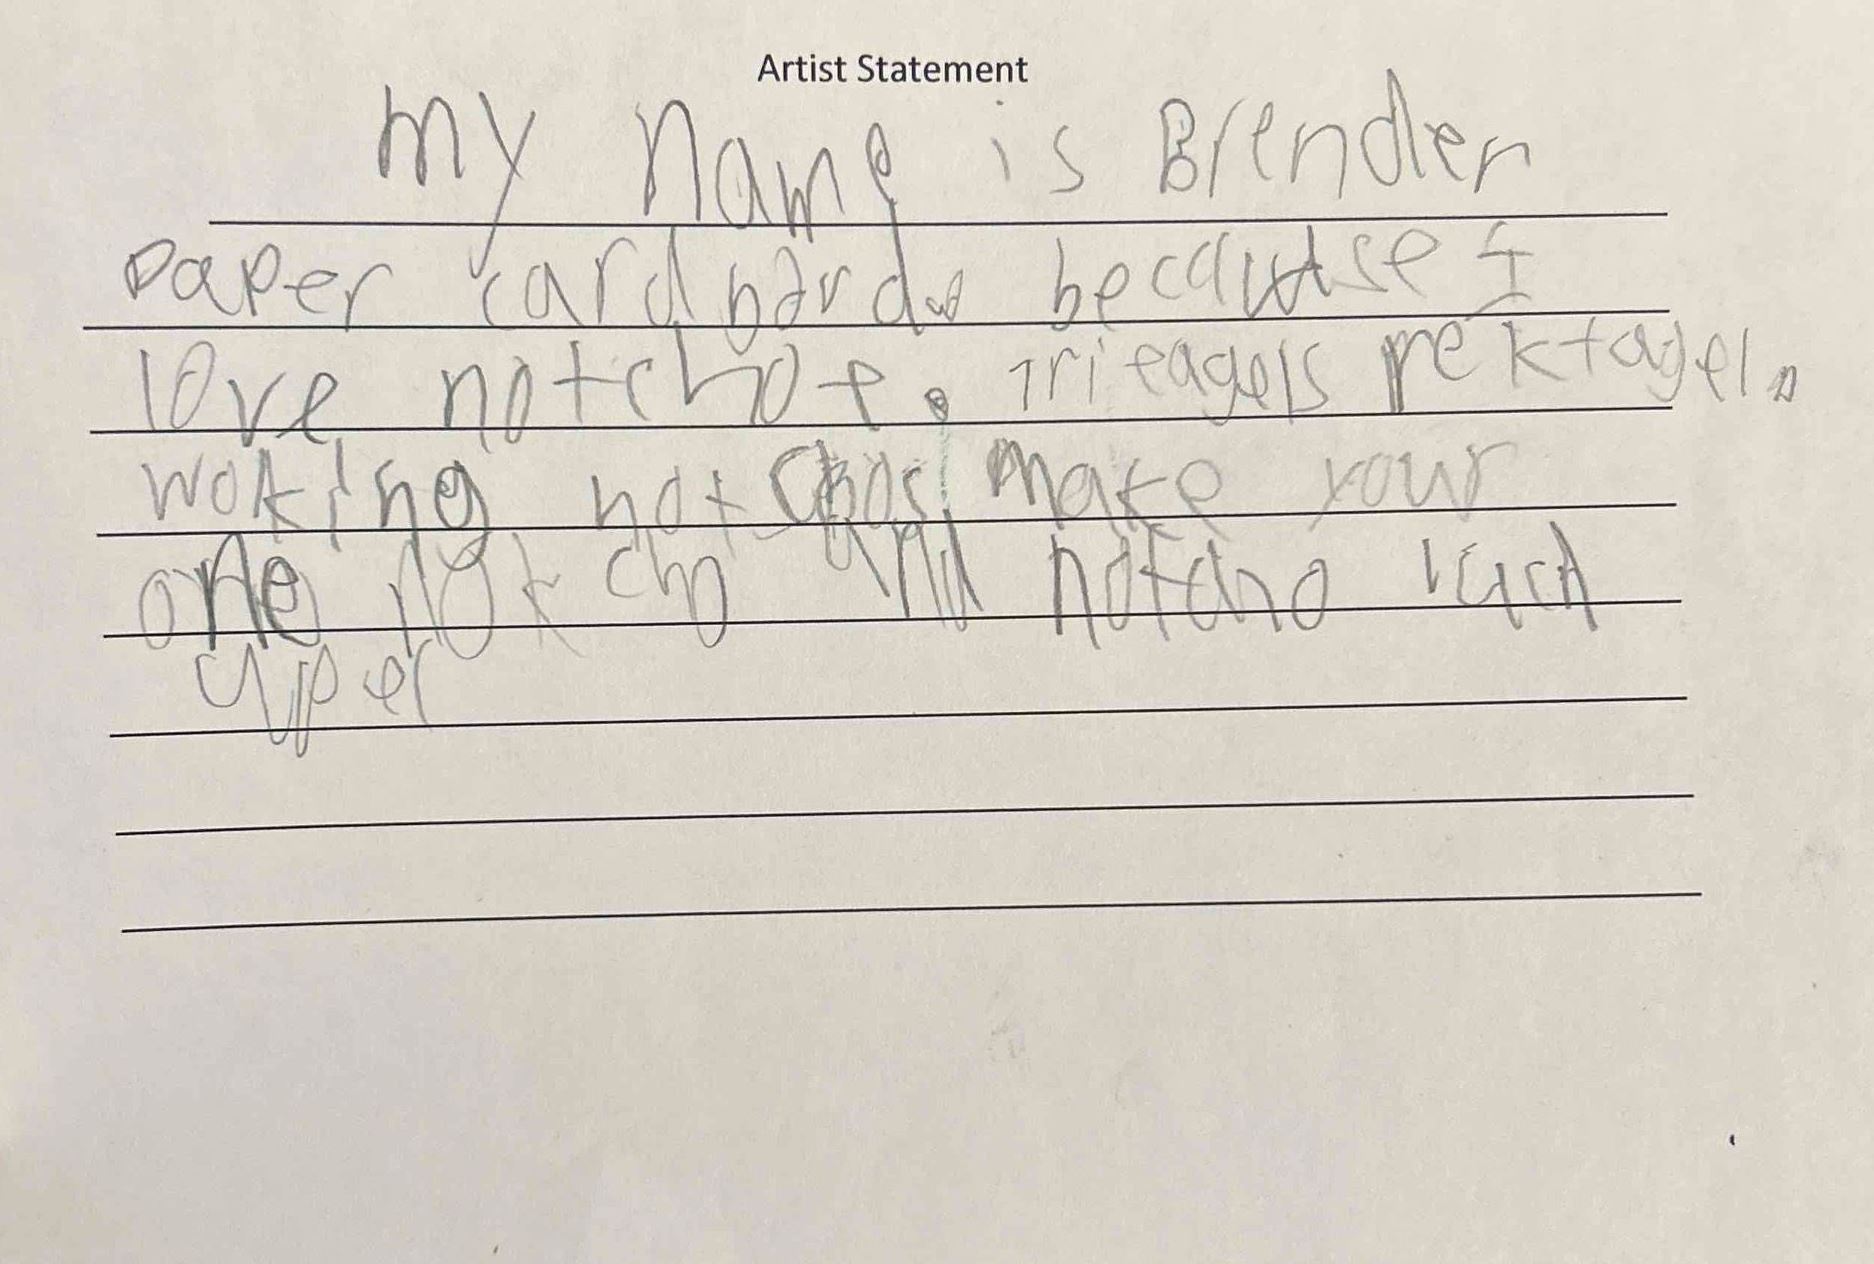 Artist Statement
my name is Brenden
Paper cardbord. because I
love notchoe. Trieagels rektagel.
woking notchos make your
one notcho and notcho